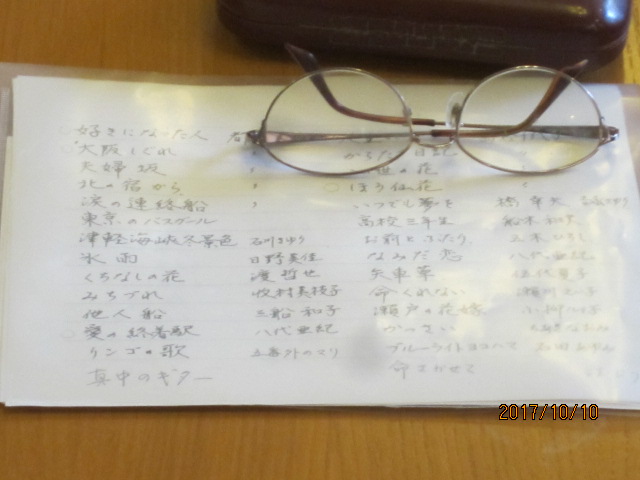 好きになった人
大阪しぐれ 〃
夫婦坂 〃
北の宿から 〃
涙の連絡船 〃
東京のバスガール
津軽海峡冬景色 石川さゆり
氷雨 日野美佳
くちなしの花 渡哲也
みちづれ 牧村美枝子
他人船 三船和子
愛の終着駅 八代亜紀
リンゴの歌
真中のギター
日記
の花
ほう仙花 〃
いつでも夢を 橋幸夫
高校三年生 舩木和夫
お前とふたり 五木ひろし
なみだ恋 八代亜紀
矢車草
命くれない
瀬戸の花嫁 小柳ルミ子
かっさい ちあきなおみ
ブルーライトヨコハマ 石田あゆみ
命さかせて
2017/10/10